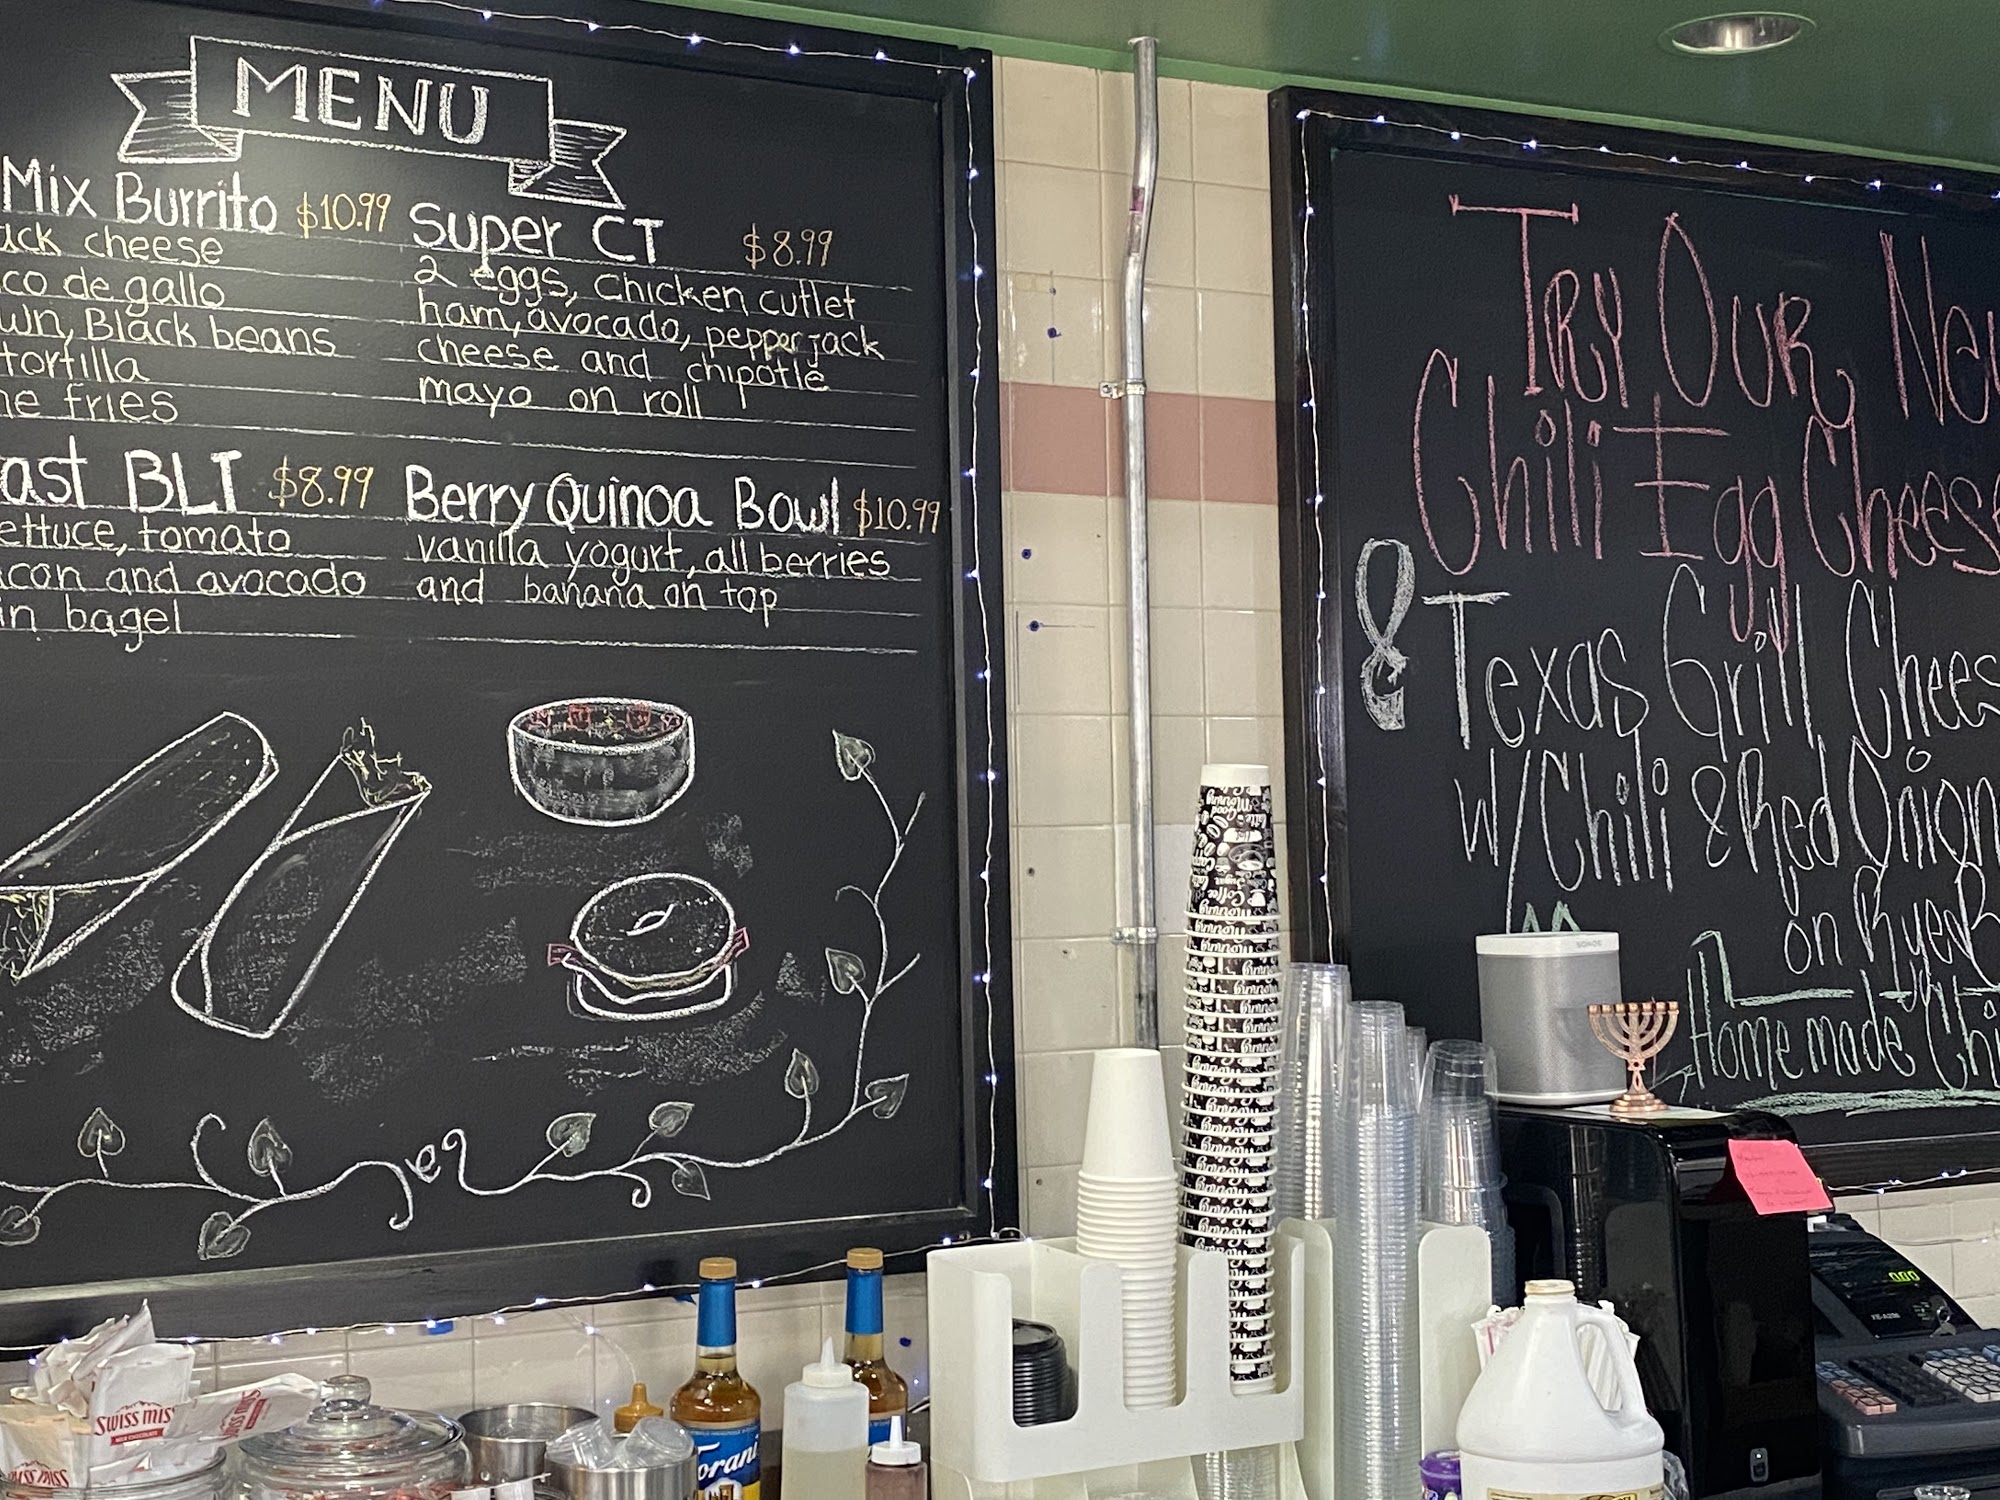 MENU
Mix Burrito $10.99
ack cheese
co de gallo
wn, Black beans
tortilla
ne fries
Super CT $8.99
2 eggs, Chicken cutlet
ham, avocado, pepper jack
cheese and chipotle
mayo on roll
ast BLT $8.99
ettuce, tomato
acon and avocado
in bagel
Berry Quinoa Bowl $10.99
vanilla yogurt, all berries
and banana on top
Try Our New
Chili Egg Cheese
& Texas Grill Chees
w/ Chili & Red Onion
on Rye B
Homemade Chi
SONOS
Good
Morning
Coffee
Swiss Miss
MILK CHOCOLATE
Swiss Miss
Swiss Miss
Torani
0.00